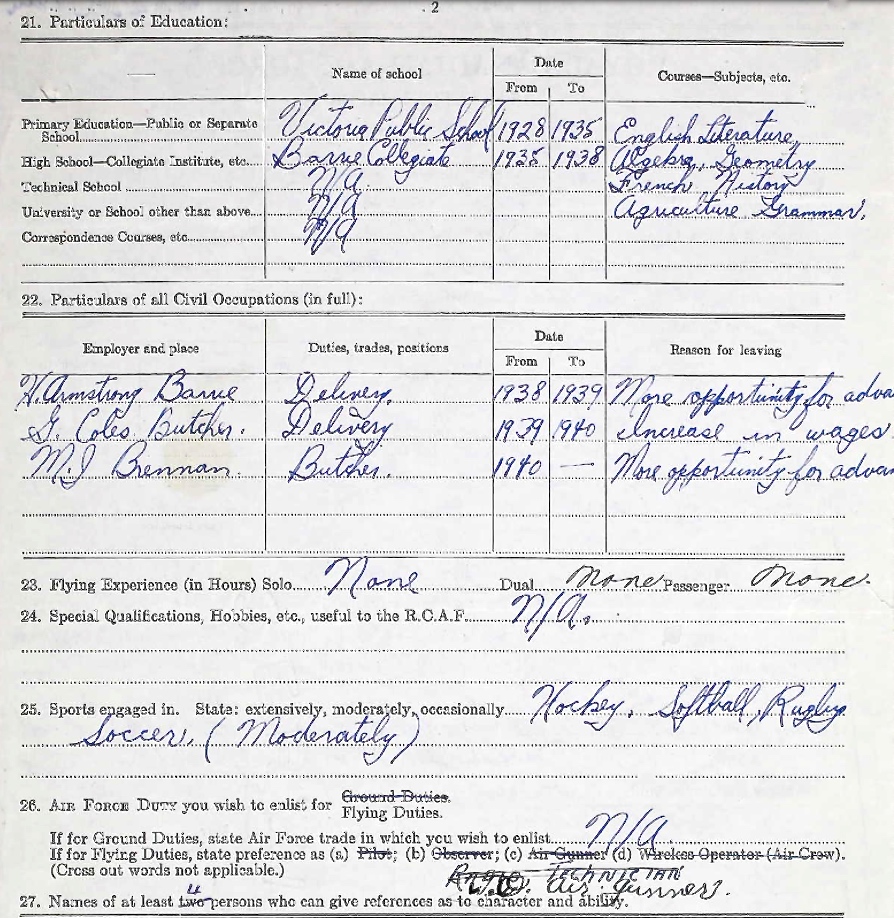 2
21. Particulars of Education:
— Name of school Date From To Courses—Subjects, etc.
Primary Education—Public or Separate School Victoria Public School 1928 1935 English Literature,
High School—Collegiate Institute, etc. Barrie Collegiate 1935 1938 Algebra, Geometry
Technical School N/A French, History
University or School other than above N/A Agriculture Grammar.
Correspondence Courses, etc. N/A
22. Particulars of all Civil Occupations (in full):
Employer and place Duties, trades, positions Date From To Reason for leaving
H. Armstrong Barrie Delivery. 1938 1939 More opportunity for adva
G. Coles Butcher. Delivery 1939 1940 Increase in wages
M.J Brennan. Butcher. 1940 — More opportunity for advan
23. Flying Experience (in Hours) Solo None Dual None Passenger None.
24. Special Qualifications, Hobbies, etc., useful to the R.C.A.F. N/A.
25. Sports engaged in. State: extensively, moderately, occasionally Hockey, Softball, Rugby
Soccer. (Moderately)
26. AIR FORCE DUTY you wish to enlist for Ground Duties.
Flying Duties.
If for Ground Duties, state Air Force trade in which you wish to enlist N/A.
If for Flying Duties, state preference as (a) Pilot; (b) Observer; (c) Air Gunner (d) Wireless Operator (Air Crew).
(Cross out words not applicable.) TECHNICIAN
Air Gunner.
27. Names of at least two 4 persons who can give references as to character and ability.